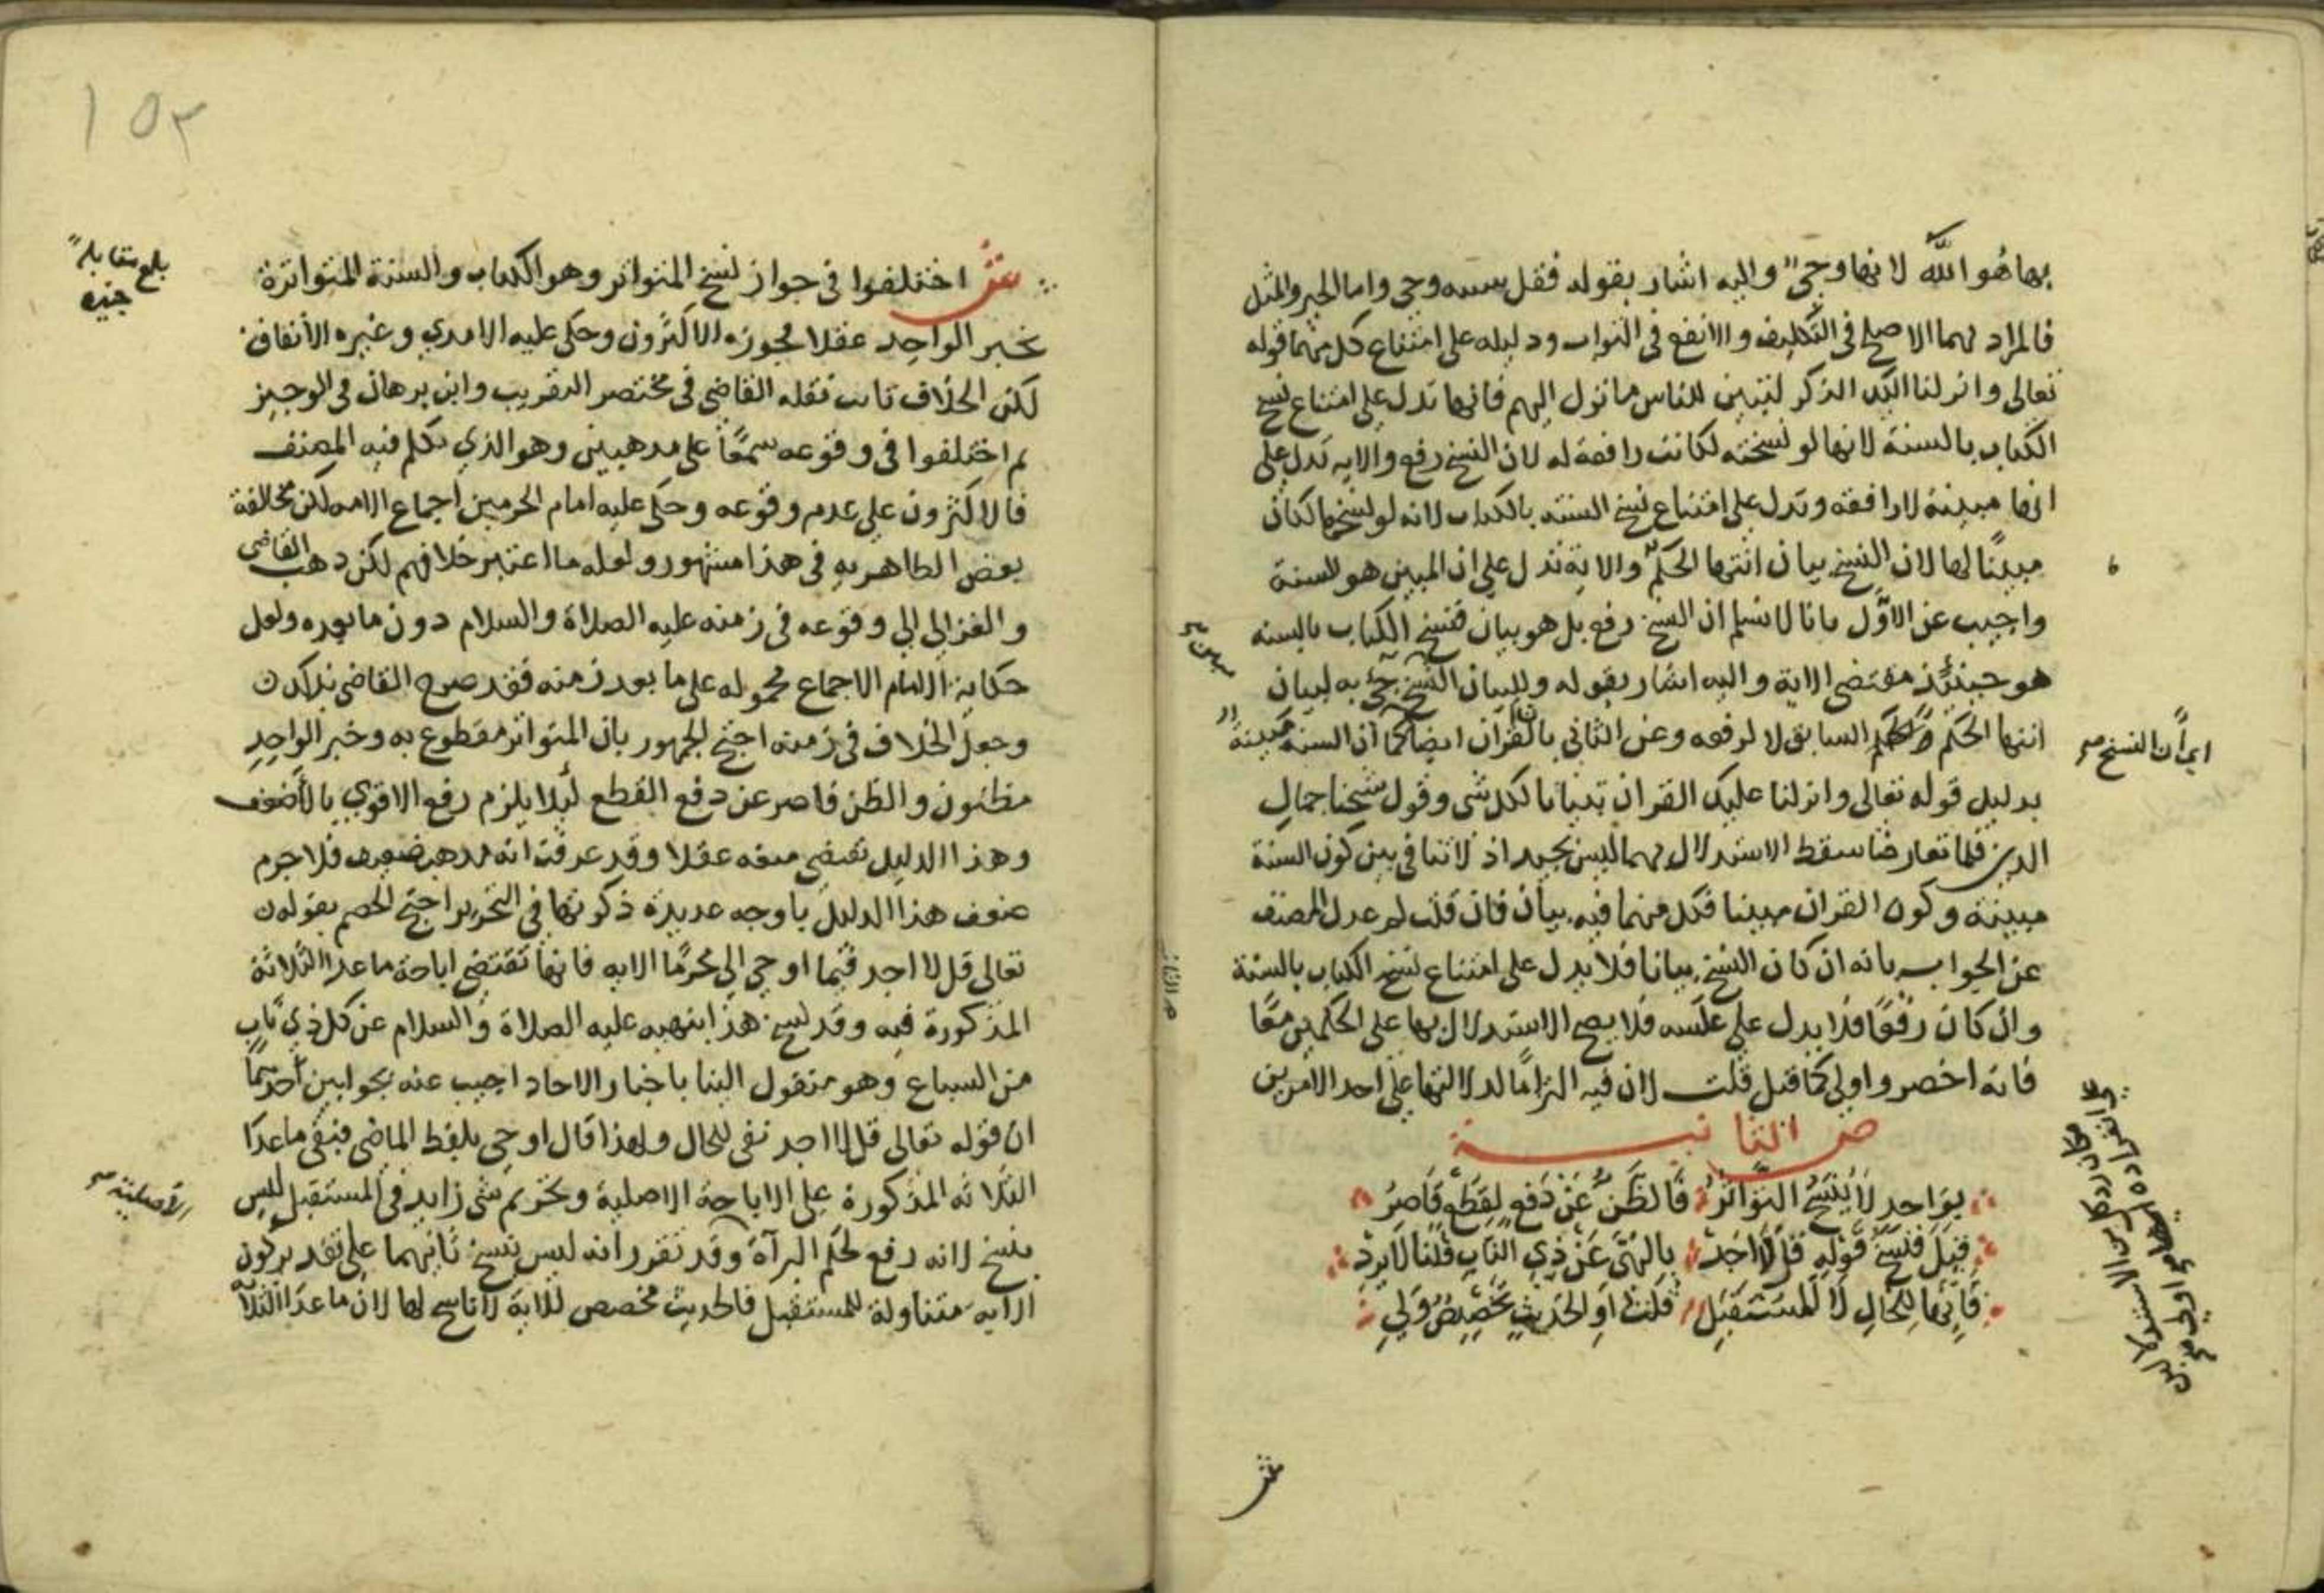 بها هو الله لانها وحي واليه اشار بقوله فقل سنته وحي واما الخير والمثل
فالمراد بهما الاصلح في التكليف والانفع في الثواب ودليله على امتناع كل منهما قوله
تعالى وانزلنا اليك الذكر لتبين للناس ما نزل اليهم فانها تدل على امتناع نسخ
الكتاب بالسنة لانها لو نسخته لكانت رافعة له لان النسخ رفع والايه تدل على
انها مبينة لا رافعة وتدل على امتناع نسخ السنة بالكتاب لانه لو نسخها لكان
مبينًا لها لان النسخ بيان انتها الحكم والاية تدل على ان المبين هو السنة
واجيب عن الاوّل بانا لا نسلم ان النسخ رفع بل هو بيان فنسخ الكتاب بالسنه
هو حينئذ مقتضى الاية واليه اشار بقوله وللبيان النسخ جيء به لبيان
انتها الحكم السابق لا لرفعه وعن الثاني بان القرآن ايضا كما ان السنة مبينة
بدليل قوله تعالى وانزلنا عليك القران تبيانا لكل شى وقول شيخنا جمال
الدين فلما تعارضا سقط الاستدلال بهما ليس بجيد اذ لا تنافي بين كون السنة
مبينة وكون القران مبينا فكل منهما فيه بيان فان قلت لم عدل المصنف
عن الجواب بانه ان كان النسخ بيانا فلا يدل على امتناع نسخ الكتاب بالسنة
وان كان رفعًا فلا يدل على عكسه فلا يصح الاستدلال بها على الحكمين معًا
فانه اخصر واولى كما قيل قلت لان فيه التزامًا لدلالتها على احد الامرين
ص الثانيــة
بِوَاحِدٍ لَا يُنْسَخُ التَّوَاتُرُ فَالظَّنُّ عَنْ دَفعٍ لِقَطعٍ قَاصِرُ
قِيلَ فنسخ قَوله قل لا أَجِدْ بالنهى عَنْ ذِي النَّابِ قُلنَا لا يرِدْ
فَإنّها لِلحَالِ لَا لِلمُسْتَقبَلِ قُلتُ او الحَدِيث تَخْصِيصٌ وَلِي
اي ان النسخ صح
شر
١٥٢
شر اختلفوا في جواز نسخ المتواتر وهو الكتاب والسنة المتواترة
بخبر الواحد عقلا فجوزه الاكثرون وحكى عليه الامدي وغيره الاتفاق
لكن الخلاف ثابت نقله القاضي في مختصر التقريب وابن برهان في الوجيز
ثم اختلفوا في وقوعه سمعًا على مذهبين وهو الذي تكلم فيه المصنف
فالاكثرون على عدم وقوعه وحكى عليه امام الحرمين اجماع الامه لكن مخالفة
بعض الظاهريه في هذا مشهور ولعله ما اعتبر خلافهم لكن ذهب القاضي
والغزالي الي وقوعه في زمنه عليه الصلاة والسلام دون ما بعده ولعل
حكاية الامام الاجماع محموله على ما بعد زمنه فقد صرح القاضي بذلك
وجعل الخلاف في زمنه احتج الجمهور بان المتواتر مقطوع به وخبر الواحد
مظنون والظن قاصر عن دفع القطع ليلا يلزم رفع الاقوي بالأضعف
وهذا الدليل يقتضي منعه عقلا وقد عرفت انه مذهب ضعيف فلا جرم
ضعف هذا الدليل باوجه عديدة ذكرتها في التحرير احتج الخصم بقوله
تعالى قل لا اجد فيما اوحي الي محرمًا الايه فانها تقتضي اباحة ما عدا الثلاثة
المذكورة فيه وقد نسخ هذا بنهيه عليه الصلاة والسلام عن كل ذي ناب
من السباع وهو منقول الينا باخبار الاحاد اجيب عنه بجوابين احدهما
ان قوله تعالى قل لا اجد نفى للحال ولهذا قال اوحي بلفظ الماضي فبقى ما عدا
الثلاثه المذكورة على الاباحة الاصلية وتحريم شى زايد في المستقبل ليس
بنسخ لانه رفع لحكم البرآة وقد تقرر انه ليس بنسخ ثانيهما على تقدير كون
الايه متناولة للمستقبل فالحديث مخصص للاية لا ناسخ لها لان ما عدا الثلاثة
بلغ مقابلة
الاصلية صح